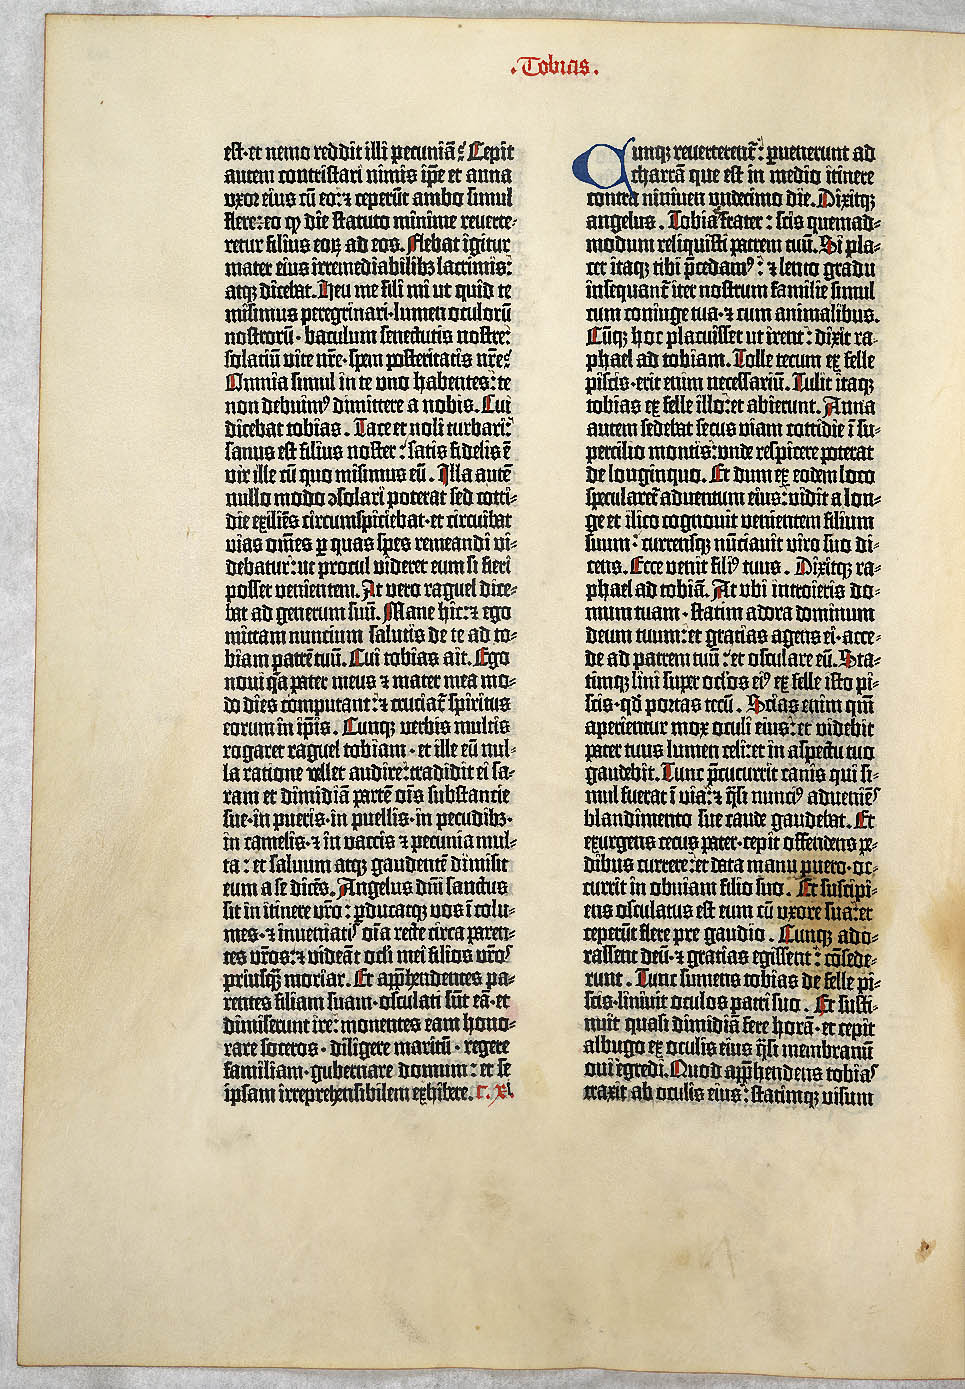 .Tobias.
est·et nemo reddit illi pecuniā: Cepit
autem contristari nimis ip̄e et anna
uxor eius cū eo: ⁊ ceperūt ambo simul
flere: eo ꝙ die statuto minime reuerte-
retur filius eoꝝ ad eos. Flebat igitur
mater eius irremediabilibꝫ lacrimis:
atqꝫ dicebat. Heu me fili mi ut quid te
misimus peregrinari·lumen oculorū
nostrorū·baculum senectutis nostre:
solatiū vite nr̄e·spem posteritatis nr̄e:
Omnia simul in te uno habentes: te
non debuimꝰ dimittere a nobis. Cui
dicebat tobias. Tace et noli turbari:
sanus est filius noster: satis fidelis ē
vir ille cū quo misimus eū. Illa autē
nullo modo ꝯsolari poterat sed cotti-
die exiliēs circumspiciebat·et circuibat
vias om̄es ꝑ quas spes remeandi vi-
debatur: ut procul videret eum si fieri
posset venientem. At vero raguel dice-
bat ad generum suū. Mane hic: ⁊ ego
mittam nuncium salutis de te ad to-
biam patrē tuū. Cui tobias ait. Ego
noui qā pater meus ⁊ mater mea mo-
do dies computant: ⁊ cruciat̄ spiritus
eorum in ip̄is. Cumqꝫ verbis multis
rogaret raguel tobiam·et ille eū nul-
la ratione vellet audire: tradidit ei sa-
ram et dimidiā partē oīs substantie
sue·in pueris·in puellis·in pecudibꝫ·
in camelis·⁊ in vaccis ⁊ pecunia mul-
ta: et saluum atqꝫ gaudentē dimisit
eum a se dicēs. Angelus dn̄i sanctus
sit in itinere vr̄o: ꝑducatqꝫ vos ī colu-
mes·⁊ inueniatꝭ oīa recte circa paren-
tes vr̄os: ⁊ videāt oc̄li mei filios vr̄os
priusqꝫ̄ moriar. Et app̄hendentes pa-
rentes filiam suam·osculati sūt eā·et
dimiserunt ire: monentes eam hono-
rare soceros·diligere maritū·regere
familiam·gubernare domum: et se
ipsam irreprehensibilem exhibere. C. xi.
Cumqꝫ reuerterent̄: ꝑuenerunt ad
charrā que est in medio itinere
contra niniuen undecimo die. Dixitqꝫ
angelus. Tobia frater: scis quemad-
modum reliquisti patrem tuū. Si pla-
cet itaqꝫ tibi p̄cedamꝰ: ⁊ lento gradu
insequant̄ iter nostrum familie simul
cum coniuge tua·⁊ cum animalibus.
Cūqꝫ hoc placuisset ut irent: dixit ra-
phael ad tobiam. Tolle tecum ex felle
piscis·erit enim necessariū. Tulit itaqꝫ
tobias ex felle illo: et abierunt. Anna
autem sedebat secus viam cottidie ī su-
percilio montis: unde respicere poterat
de longinquo. Et dum ex eodem loco
specularet̄ aduentum eius: vidit a lon-
ge et ilico cognouit venientem filium
suum: currensqꝫ nūciauit viro suo di-
cens. Ecce venit filiꝰ tuus. Dixitqꝫ ra-
phael ad tobiā. At ubi introieris do-
mum tuam·statim adora dominum
deum tuum: et gratias agens ei·acce-
de ad patrem tuū: et osculare eū. Sta-
timqꝫ lini super oc̄los eiꝰ ex felle isto pi-
scis·qd̄ portas tecū. Scias enim qm̄
aperientur mox oculi eius: et videbit
pater tuus lumen celi: et in aspectu tuo
gaudebit. Tunc p̄cucurrit canis qui si-
mul fuerat ī via: ⁊ q̄si nunciꝰ adueniēs
blandimento sue caude gaudebat. Et
exurgens cecus pater·cepit offendens pe-
dibus currere: et data manu puero·oc-
currit in obuiam filio suo. Et suscipi-
ens osculatus est eum cū uxore sua: et
ceperūt flere pre gaudio. Cumqꝫ ado-
rassent deū·⁊ gratias egissent: cōsede-
runt. Tunc sumens tobias de felle pi-
scis·liniuit oculos patri suo. Et susti-
nuit quasi dimidiā fere horā·et cepit
albugo ex oculis eius q̄si membranū
oui egredi. Quod app̄hendens tobias
traxit ab oculis eius: statimqꝫ visum